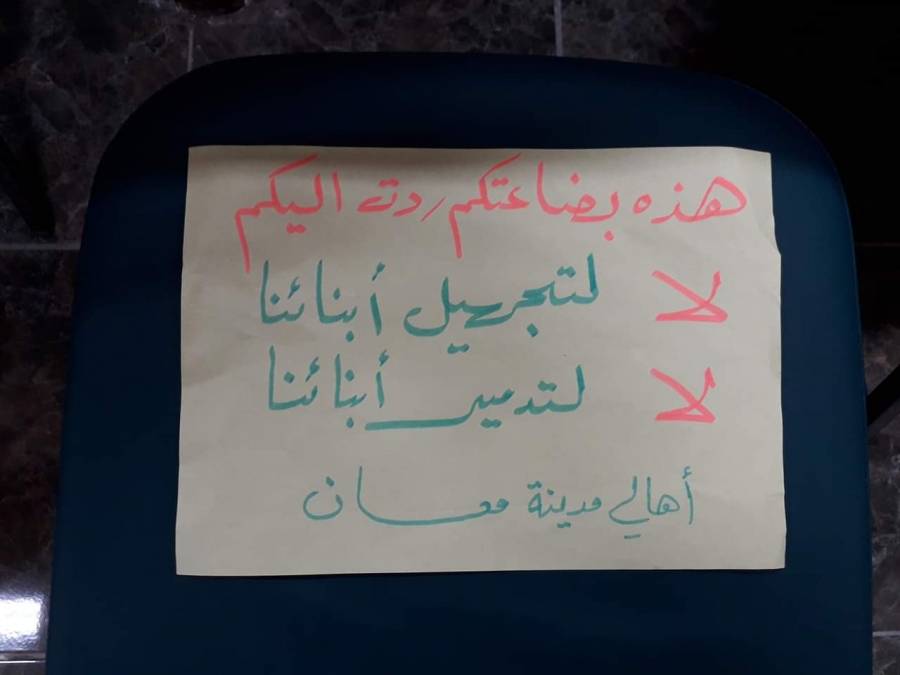 هذه بضاعتكم ردت اليكم
لا لتجهيل أبنائنا
لا لتدمير أبنائنا
أهالي مدينة معان